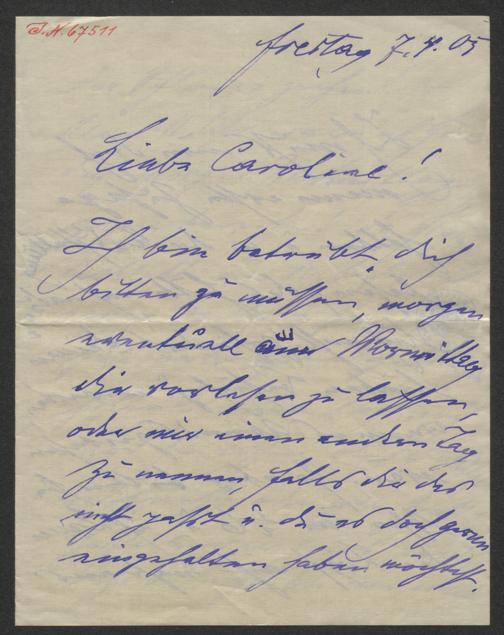 J.N. 67511
Freitag 7.4.05
Liebe Caroline!
Ich bin betrübt dich
bitten zu müssen, morgen
eventuell am Vormittag
dir vorlesen zu lassen,
oder mir einen andern Tag
zu nennen, falls dir das
nicht passt u. du es doch gerne
eingehalten haben möchtest.